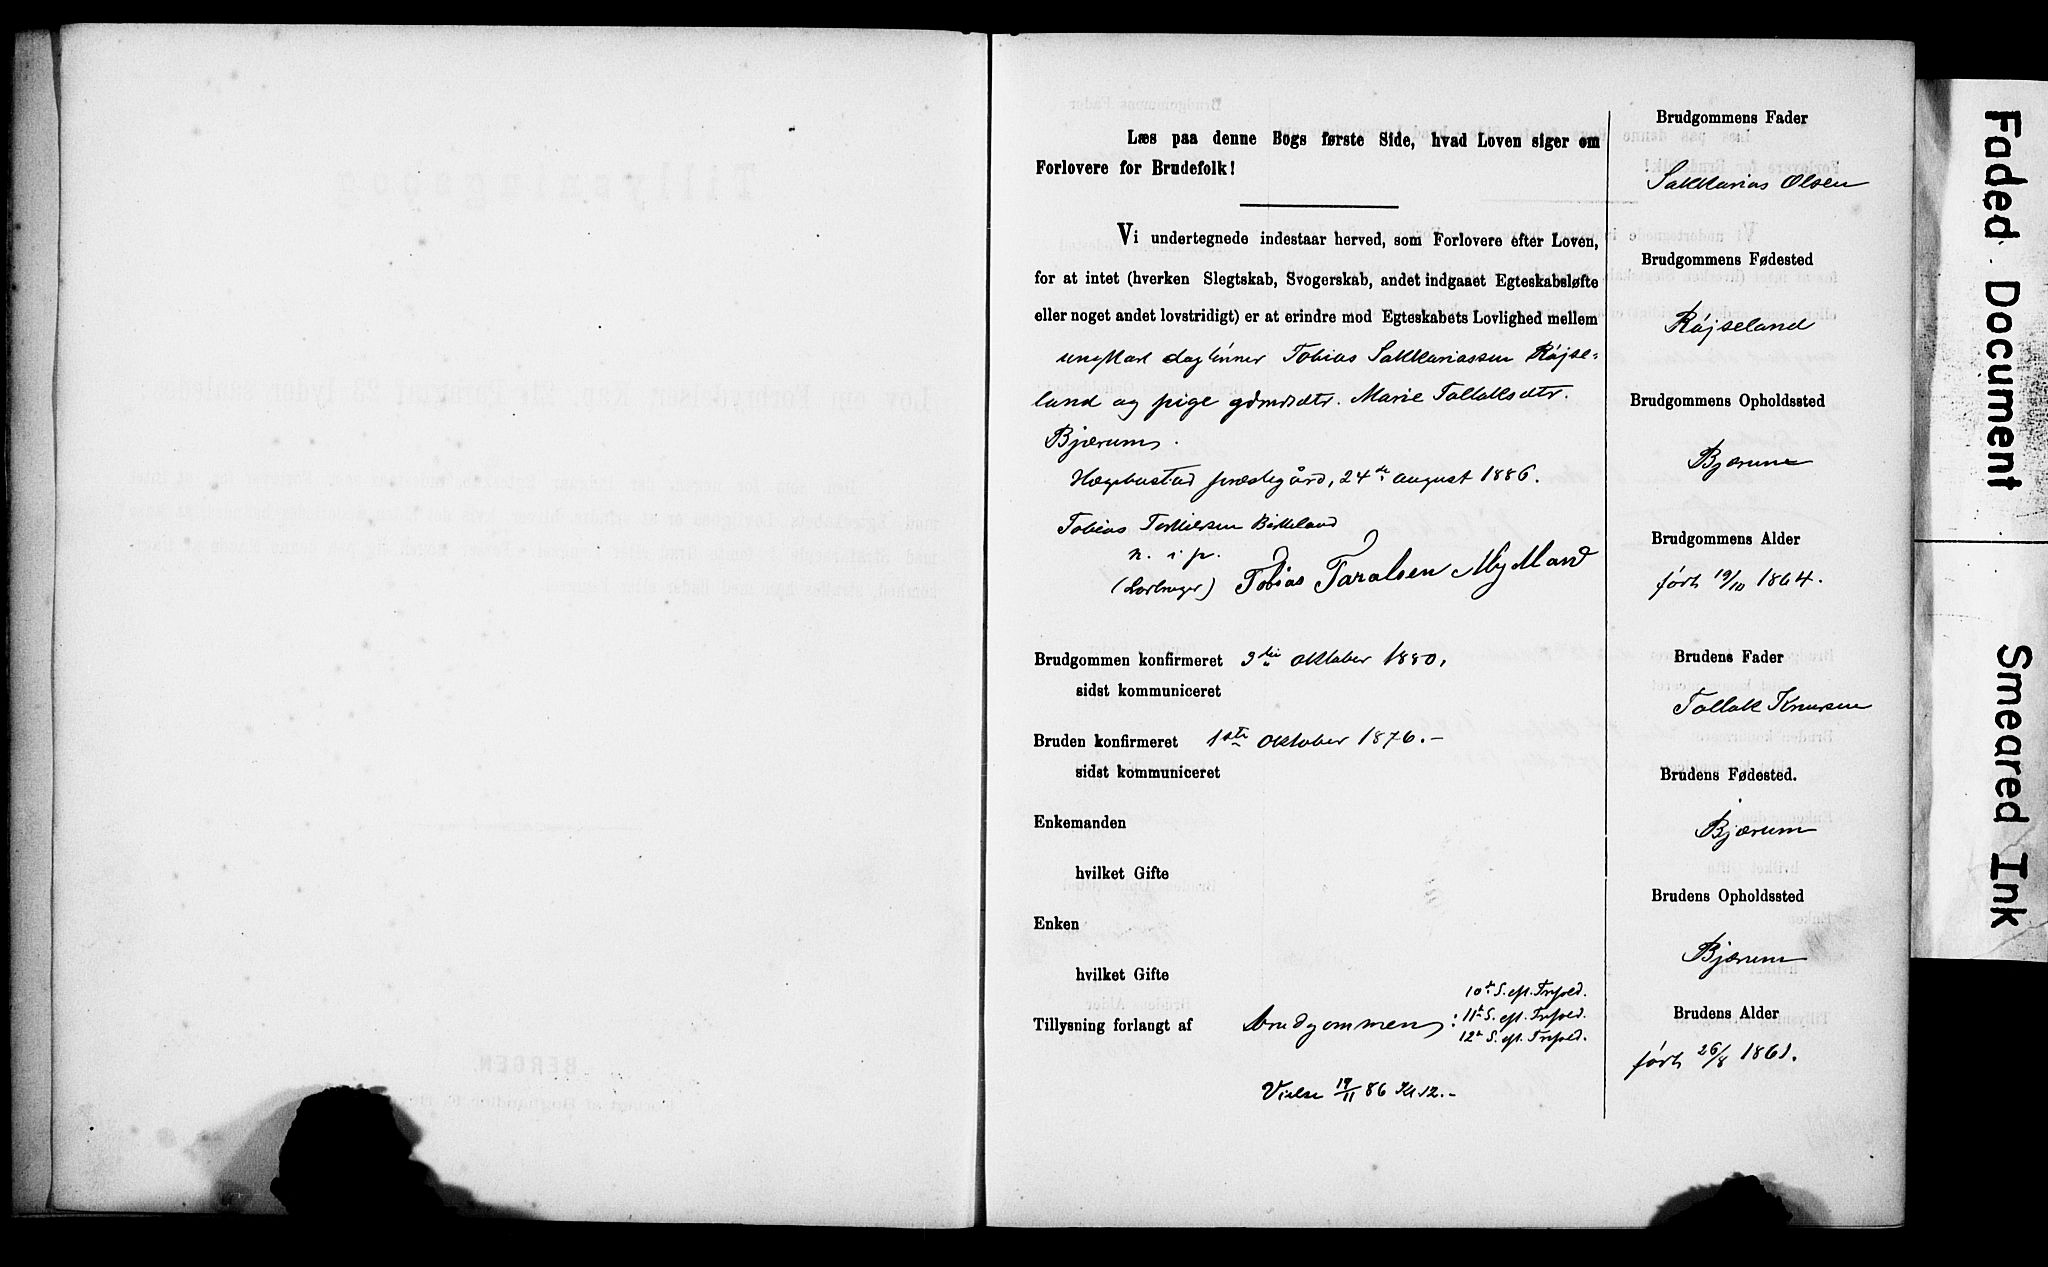 Læs paa denne Bogs første Side, hvad Loven siger om
Forlovere for Brudefolk!
Vi undertegnede indestaar herved, som Forlovere efter Loven,
for at intet (hverken Slegtskab, Svogerskab, andet indgaaet Egteskabsløfte
eller noget andet lovstridigt) er at erindre mod Egteskabets Lovlighed mellem
ungkarl daglønner Tobias Sakkariassen Røjse-
land og pige gdmdsdtr. Marie Tollaksdtr.
Bjærum.
Hægebostad præstegård, 24de august 1886.
Tobias Terkielsen Birkeland
n. i p.
(Lovbruger) Tobias Taralsen Mykland
Brudgommen konfirmeret 3die oktober 1880.
sidst kommuniceret
Bruden konfirmeret 1ste oktober 1876.-
sidst kommuniceret
Enkemanden
hvilket Gifte
Enken
hvilket Gifte
Tillysning forlangt af brudgommen:
10de S. eft. Trefold.
11te S. eft. Trefold.
12te S. eft. Trefold.
Vielse 19/11 86 Kl 12.-
Brudgommens Fader
Sakkarias Olsen
Brudgommens Fødested
Røjseland
Brudgommens Opholdssted
Bjærum
Brudgommens Alder
født 19/10 1864.
Brudens Fader
Tollak Knudsen
Brudens Fødested.
Bjærum
Brudens Opholdssted
Bjærum
Brudens Alder
født 26/8 1861.
Faded Document
Smeared Ink